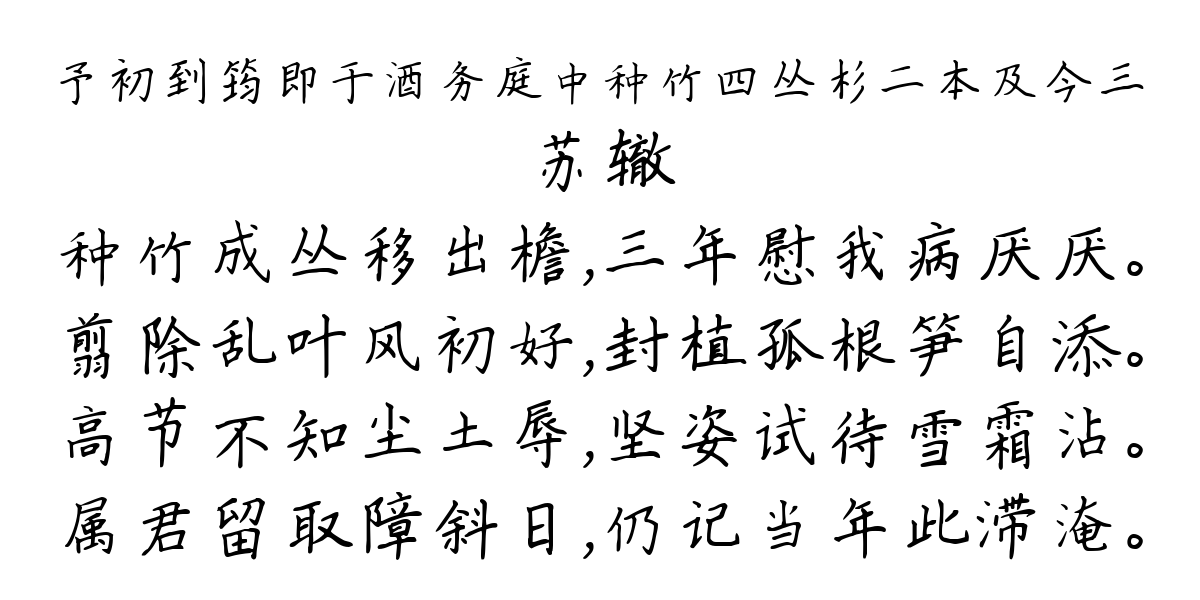 予初到筠即于酒务庭中种竹四丛杉二本及今三
苏辙
种竹成丛移出檐,三年慰我病厌厌。
翦除乱叶风初好,封植孤根笋自添。
高节不知尘土辱,坚姿试待雪霜沾。
属君留取障斜日,仍记当年此滞淹。